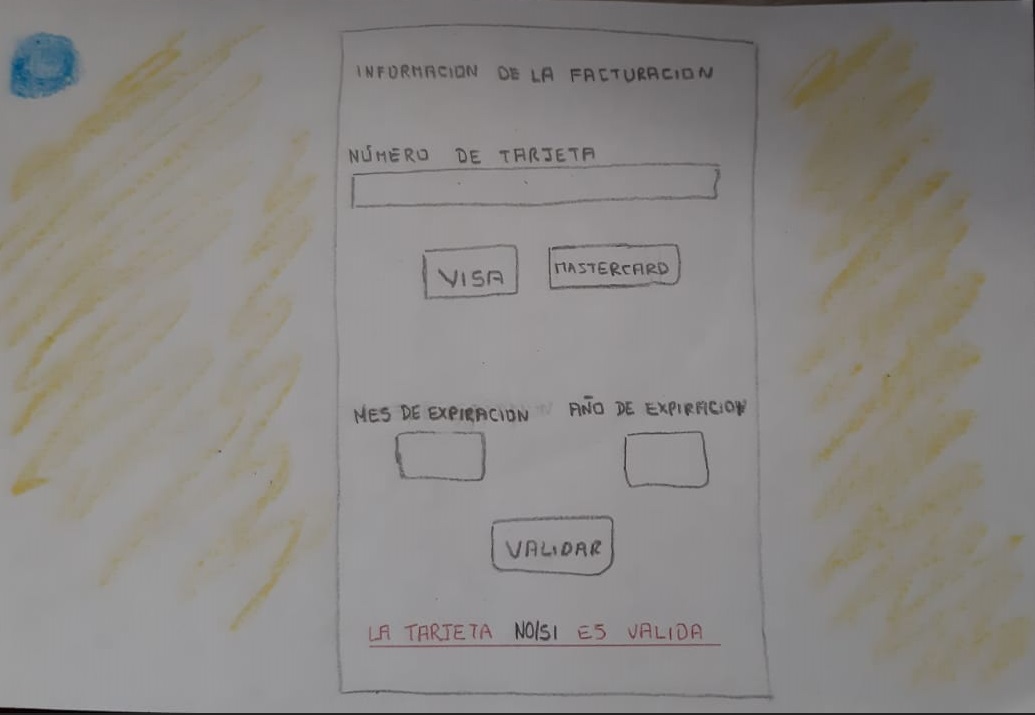 INFORMACION DE LA FACTURACION
NÚMERO DE TARJETA
VISA MASTERCARD
MES DE EXPIRACION AÑO DE EXPIRACION
VALIDAR
LA TARJETA NO/SI ES VALIDA